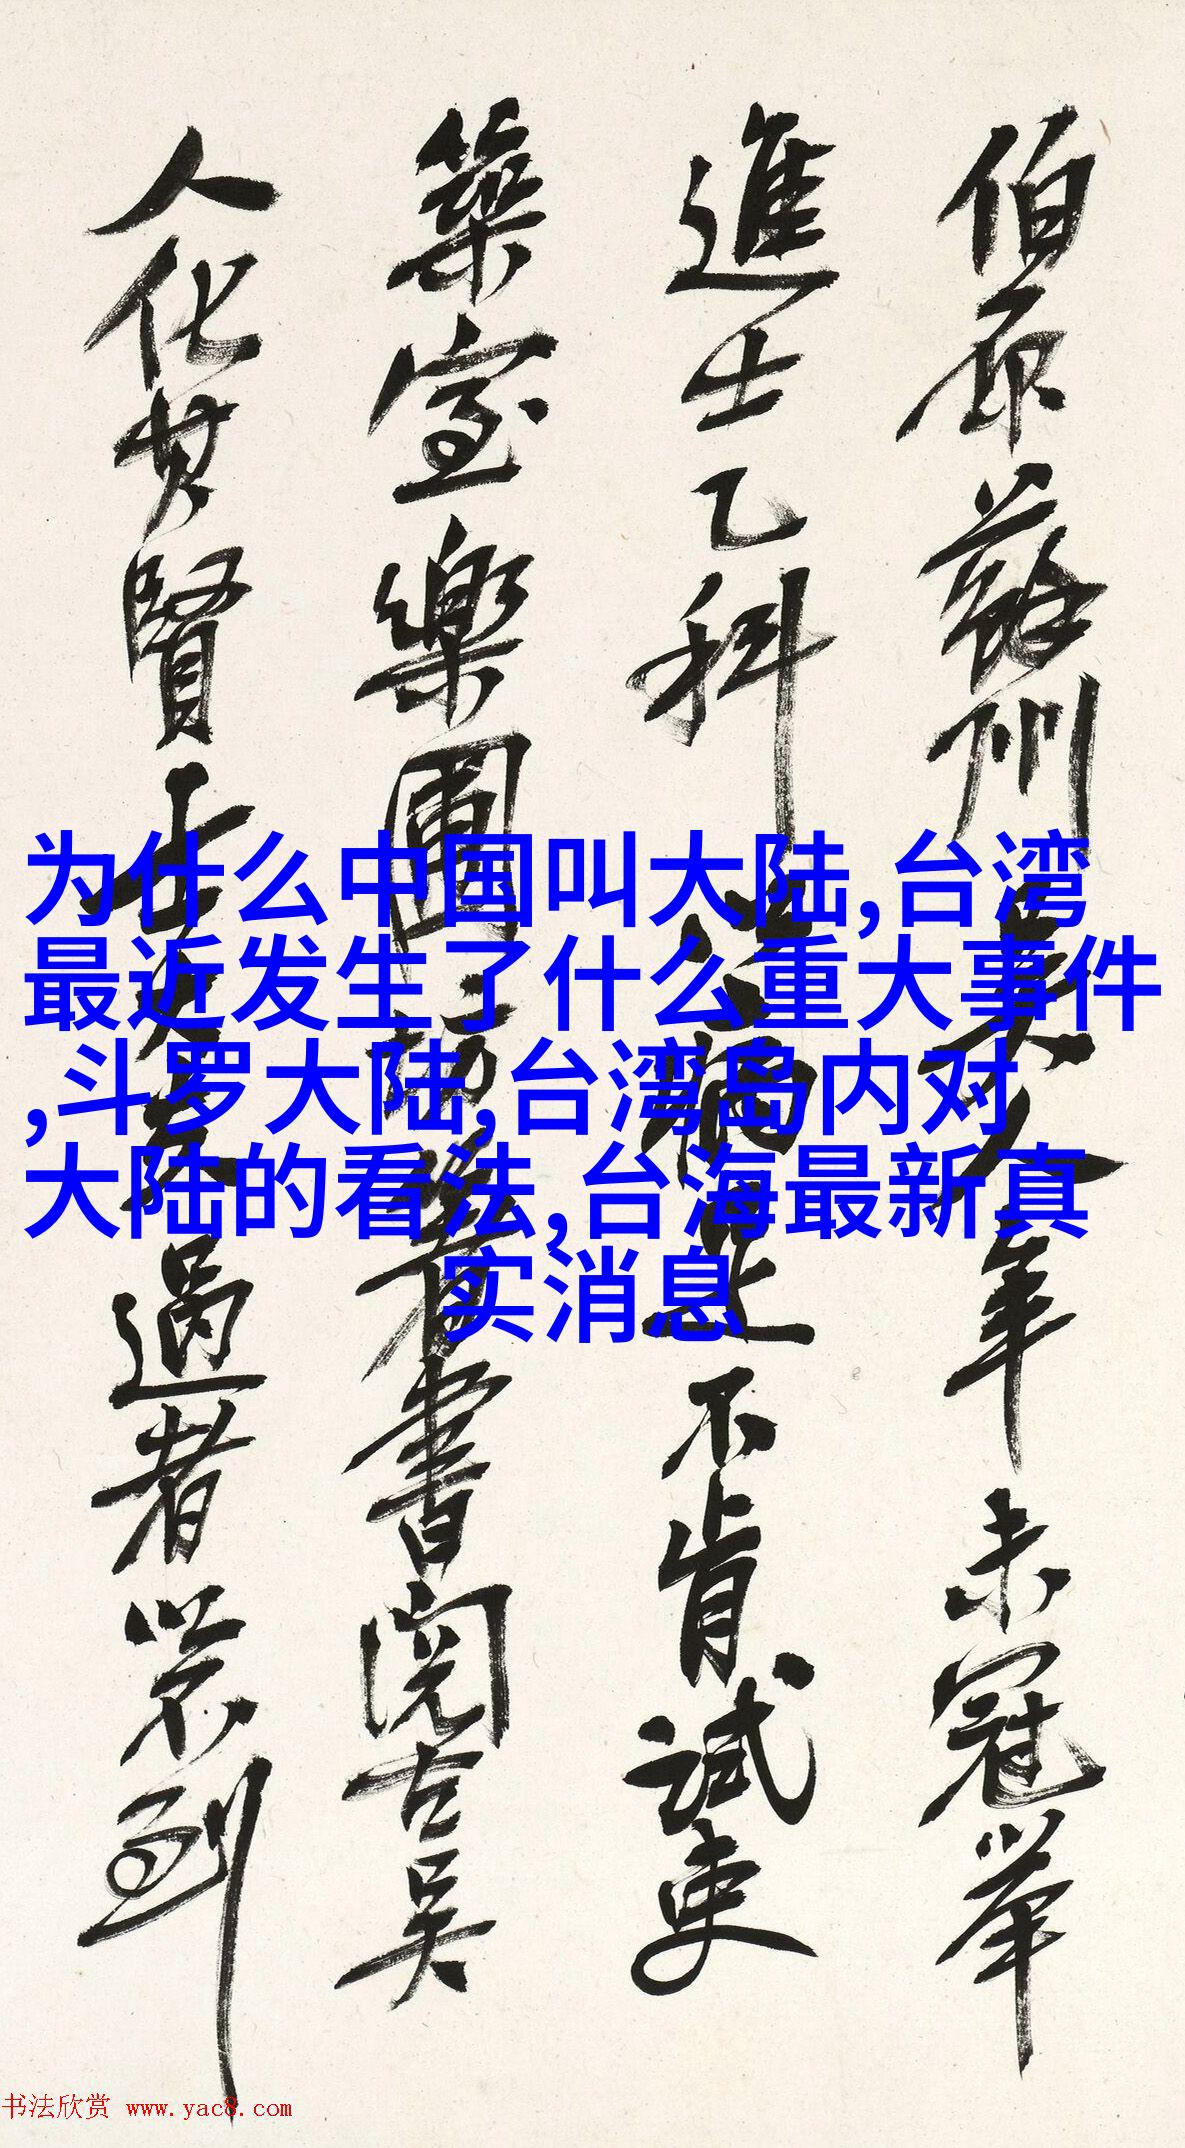 伯原蘇州吳人年未冠舉
進士乙科以病足不肯試吏
築室樂圃坊著書閱古吳
人化其賢士大夫過者以不到
为什么中国叫大陆,台湾
最近发生了什么重大事件
,斗罗大陆,台湾岛内对
大陆的看法,台海最新真
实消息
书法欣赏 www.yac8.com